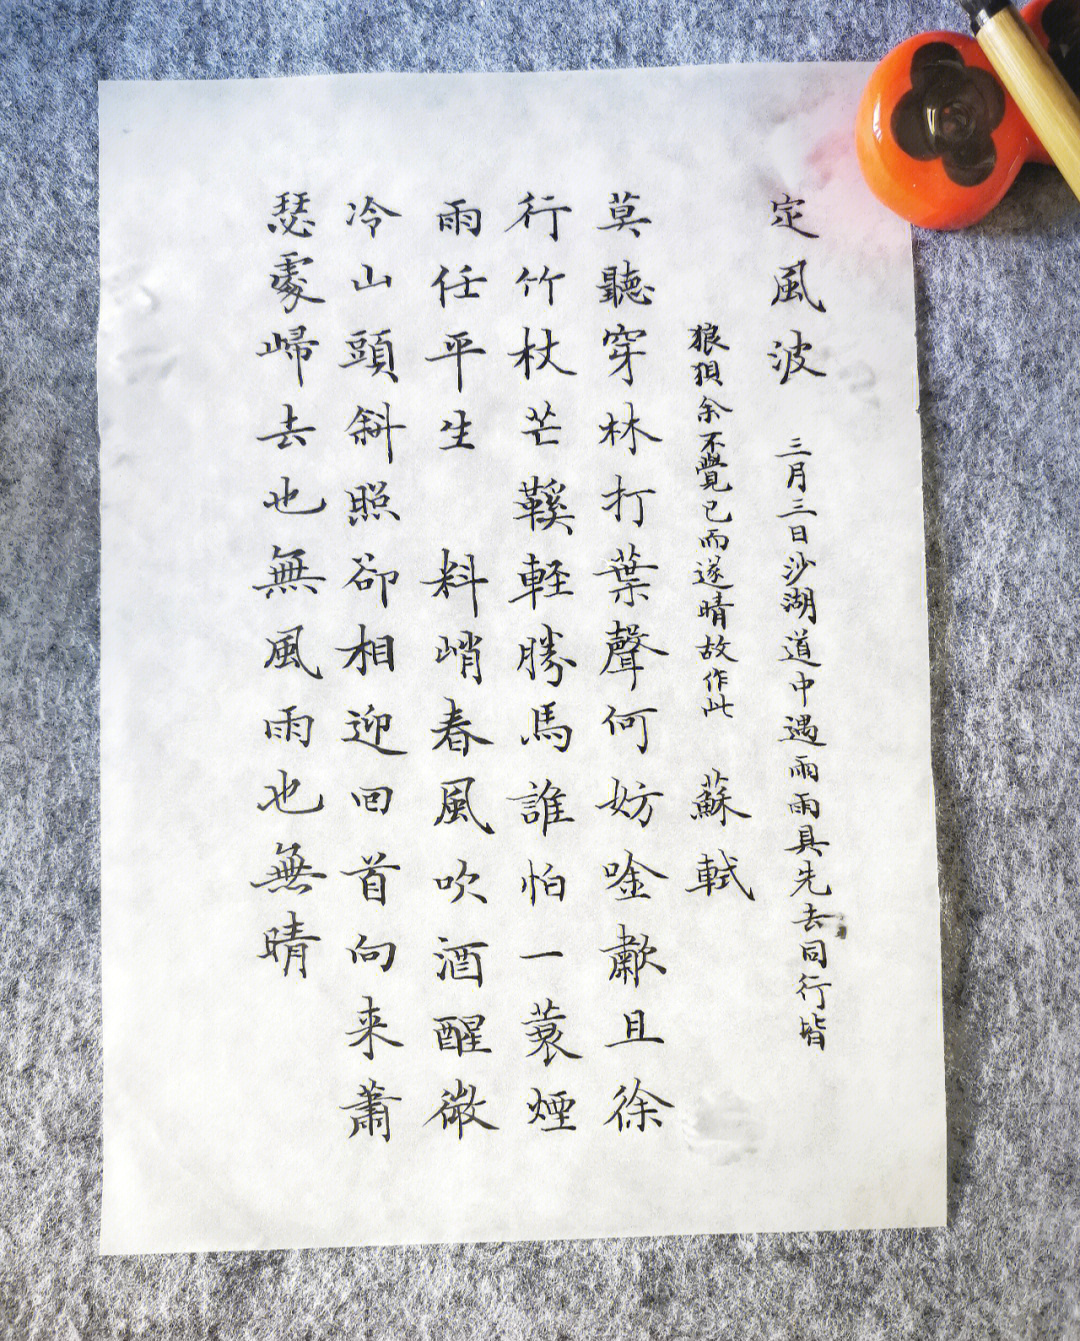 定風波 三月三日沙湖道中遇雨雨具先去同行皆
狼狽余不覺已而遂晴故作此 蘇軾
莫聽穿林打葉聲何妨唫歗且徐
行竹杖芒鞵軽勝馬誰怕一蓑煙
雨任平生 料峭春風吹酒醒微
冷山頭斜照卻相迎回首向来蕭
瑟處歸去也無風雨也無晴